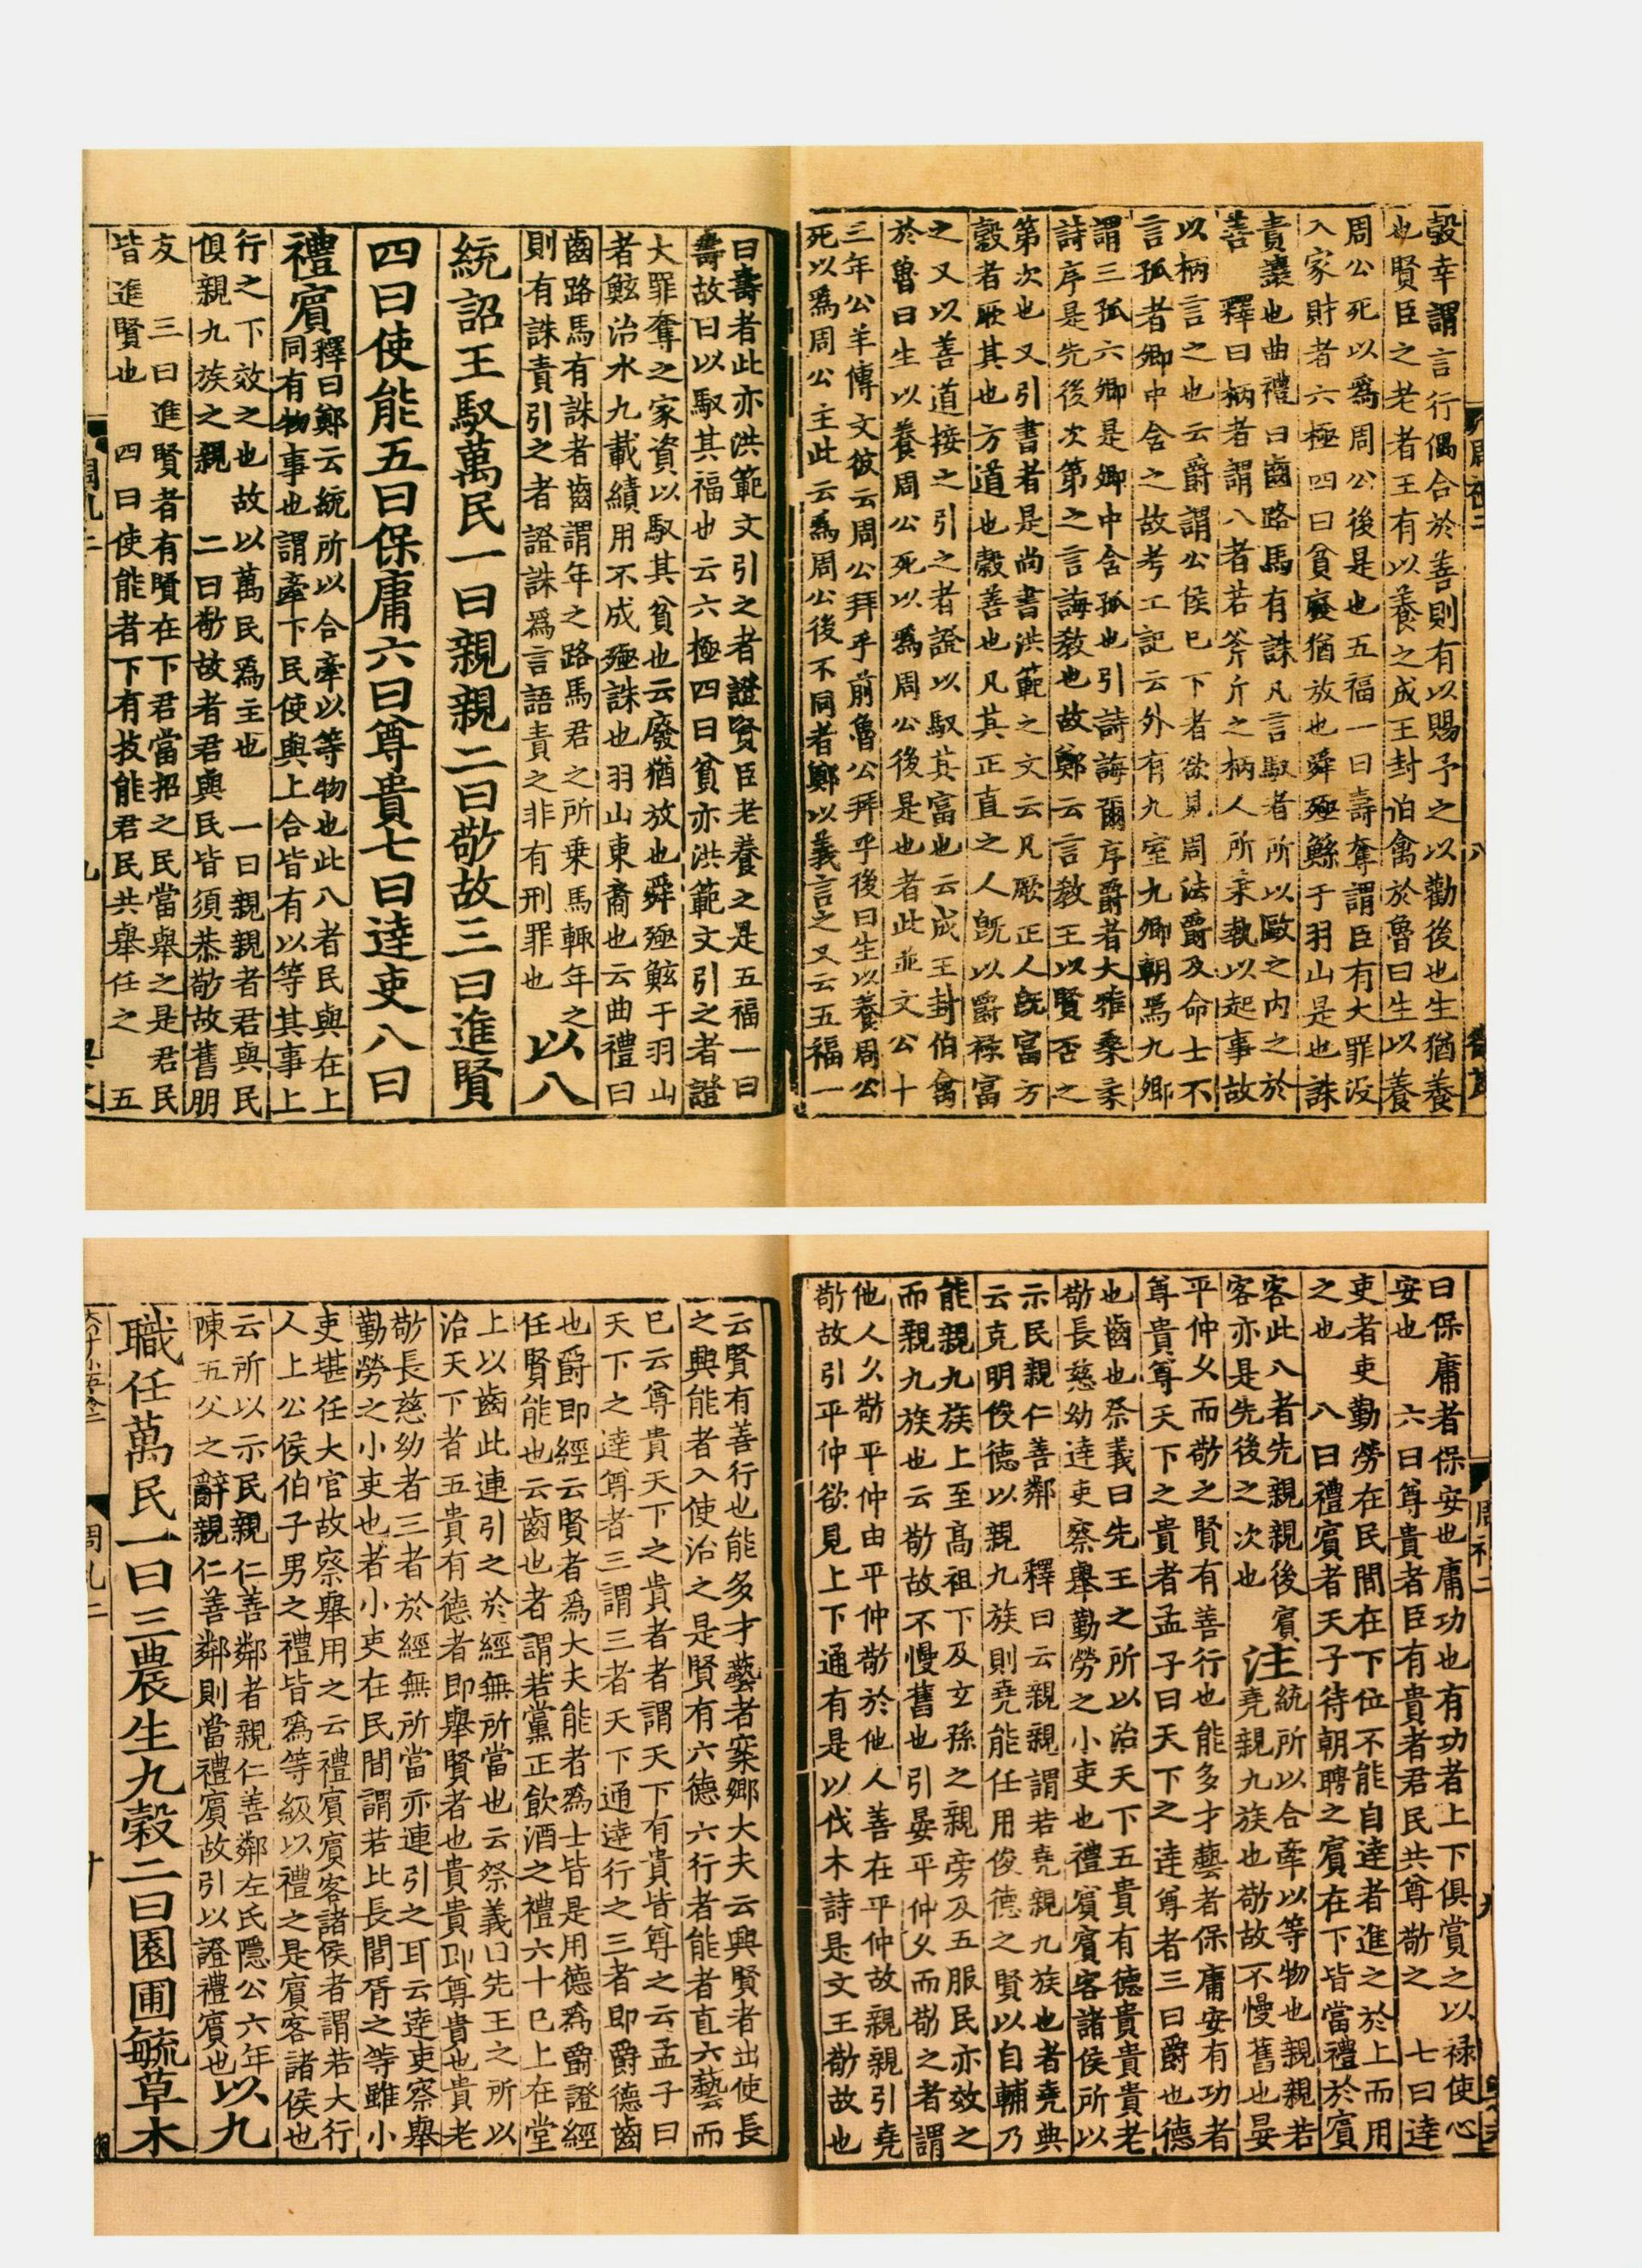 穀幸謂言行偶合於善則有以賜予之以勸後也生猶養
也賢臣之老者王有以養之成王封伯禽於魯曰生以養
周公死以爲周公後是也五福一曰壽奪謂臣有大罪沒
入家財者六極四曰貧廢猶放也舜殛鯀于羽山是也誅
責讓也曲禮曰齒路馬有誅凡言馭者所以歐之內之於
善 釋曰柄者謂八者若斧斤之柄人所秉執以起事故
以柄言之也云爵謂公侯已下者欲見周法爵及命士不
言孤者卿中含之故考工記云外有九室九卿朝焉九卿
謂三孤六卿是卿中含孤也引詩誨爾序爵者大雅桑柔
詩序是先後次第之言誨教也故鄭云言教王以賢否之
第次也又引書者是尚書洪範之文云凡厥正人旣富方
穀者厥其也方道也穀善也凡其正直之人旣以爵祿富
之又以善道接之引之者證以馭其富也云成王封伯禽
於魯曰生以養周公死以爲周公後是也者此並文公十
三年公羊傳文彼云周公拜乎前魯公拜乎後曰生以養周公
死以爲周公主此云爲周公後不同者鄭以義言之又云五福一
曰壽者此亦洪範文引之者證賢臣老養之是五福一曰
壽故曰以馭其福也云六極四曰貧亦洪範文引之者證
大罪奪之家資以馭其貧也云廢猶放也舜殛鮌于羽山
者鮌治水九載績用不成殛誅也羽山東裔也云曲禮曰
齒路馬有誅者齒謂年之路馬君之所乗馬輙年之
則有誅責引之者證誅爲言語責之非有刑罪也 以八
統詔王馭萬民一曰親親二曰敬故三曰進賢
四曰使能五曰保庸六曰尊貴七曰達吏八曰
禮賔釋曰鄭云統所以合牽以等物也此八者民與在上
同有物事也謂牽下民使與上合皆有以等其事上
行之下效之也故以萬民爲主也 一曰親親者君與民
俱親九族之親 二曰敬故者君與民皆須恭敬故舊朋
友 三曰進賢者有賢在下君當招之民當舉之是君民
皆進賢也 四曰使能者下有技能君民共舉任之 五
曰保庸者保安也庸功也有功者上下俱賞之以祿使心
安也 六曰尊貴者臣有貴者君民共尊敬之 七曰達
吏者吏勤勞在民間在下位不能自達者進之於上而用
之也 八曰禮賔者天子待朝聘之賔在下皆當禮於賔
客此八者先親親後賔注統所以合牽以等物也親親若
客亦是先後之次也 堯親九族也敬故不慢舊也晏
平仲久而敬之賢有善行也能多才藝者保庸安有功者
尊貴尊天下之貴者孟子曰天下之達尊者三曰爵也德
也齒也祭義曰先王之所以治天下五貴有德貴貴貴老
敬長慈幼達吏察舉勤勞之小吏也禮賔賔客諸侯所以
示民親仁善鄰 釋曰云親親謂若堯親九族也者堯典
云克明俊德以親九族則堯能任用俊德之賢以自輔乃
能親九族上至高祖下及玄孫之親旁及五服民亦效之
而親九族也云敬故不慢舊也引晏平仲久而敬之者謂
他人久敬平仲由平仲敬於他人善在平仲故親親引堯
敬故引平仲欲見上下通有是以伐木詩是文王敬故也
云賢有善行也能多才藝者案鄉大夫云興賢者出使長
之興能者入使治之是賢有六德六行者能者直六藝而
已云尊貴天下之貴者者謂天下有貴皆尊之云孟子曰
天下之達尊者三謂三者天下通達行之三者即爵德齒
也爵即經云賢者爲大夫能者爲士皆是用德爲爵證經
任賢能也云齒也者謂若黨正飲酒之禮六十已上在堂
上以齒此連引之於經無所當也云祭義曰先王之所以
治天下者五貴有德者即舉賢者也貴貴卽尊貴也貴老
敬長慈幼者三者於經無所當亦連引之耳云達吏察舉
勤勞之小吏也者小吏在民間謂若比長閭胥之等雖小
吏堪任大官故察舉用之云禮賔賔客諸侯者謂若大行
人上公侯伯子男之禮皆爲等級以禮之是賔客諸侯也
云所以示民親仁善鄰者親仁善鄰左氏隱公六年
陳五父之辭親仁善鄰則當禮賔故引以證禮賔也以九
職任萬民一曰三農生九穀二曰園圃毓草木